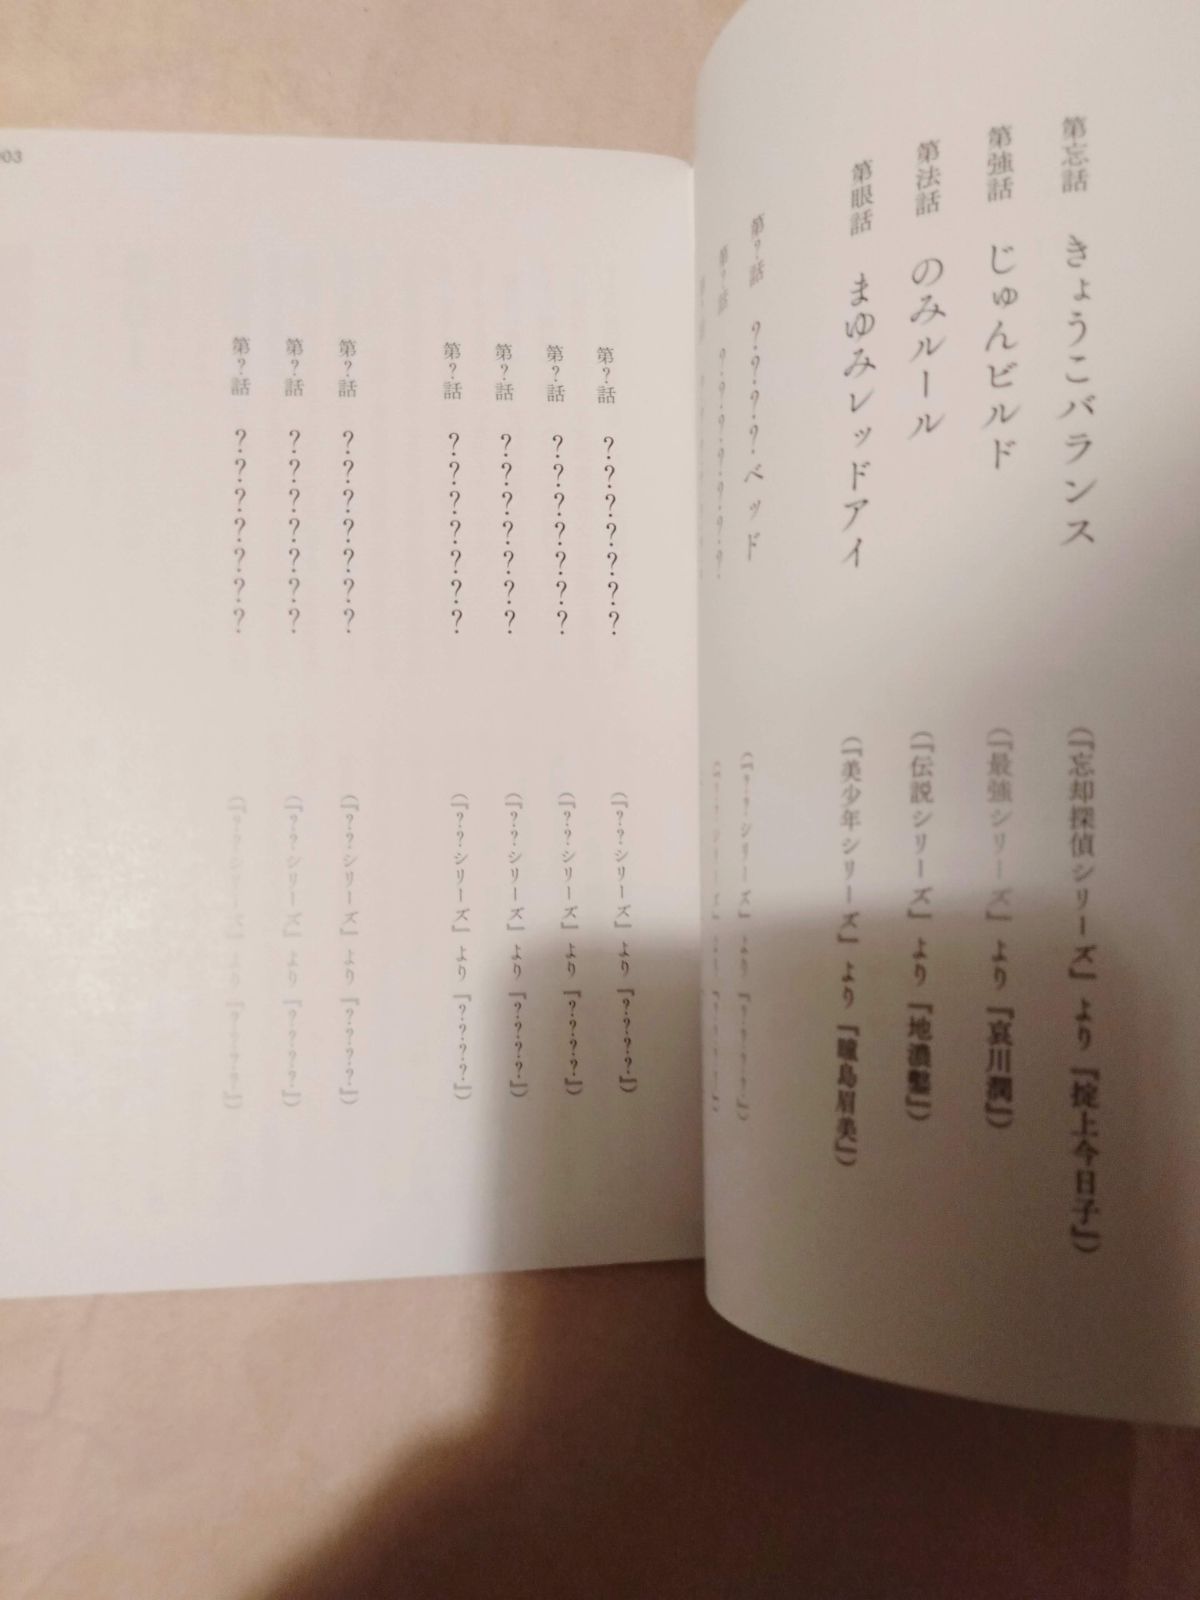 第忘話 きょうこバランス (『忘却探偵シリーズ』より『掟上今日子』)
第強話 じゅんビルド (『最強シリーズ』より『哀川潤』)
第法話 のみルール (『伝説シリーズ』より『地濃鑿』)
第眼話 まゆみレッドアイ (『美少年シリーズ』より『瞳島眉美』)
第?話 ????ベッド (『??シリーズ』より『????』)
第?話 ??????? (『??シリーズ』より『????』)
第?話 ??????? (『??シリーズ』より『????』)
第?話 ??????? (『??シリーズ』より『????』)
第?話 ??????? (『??シリーズ』より『????』)
第?話 ??????? (『??シリーズ』より『????』)
第?話 ??????? (『??シリーズ』より『????』)
第?話 ??????? (『??シリーズ』より『????』)
第?話 ??????? (『??シリーズ』より『????』)
003